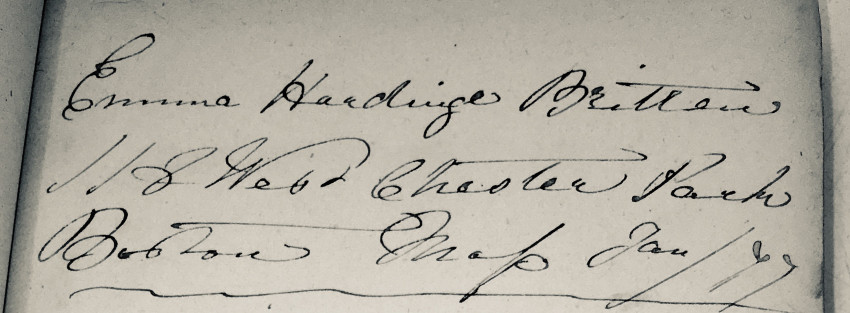 Emma Hardinge Britten
118 West Chester Park
Boston Mass Jan/77